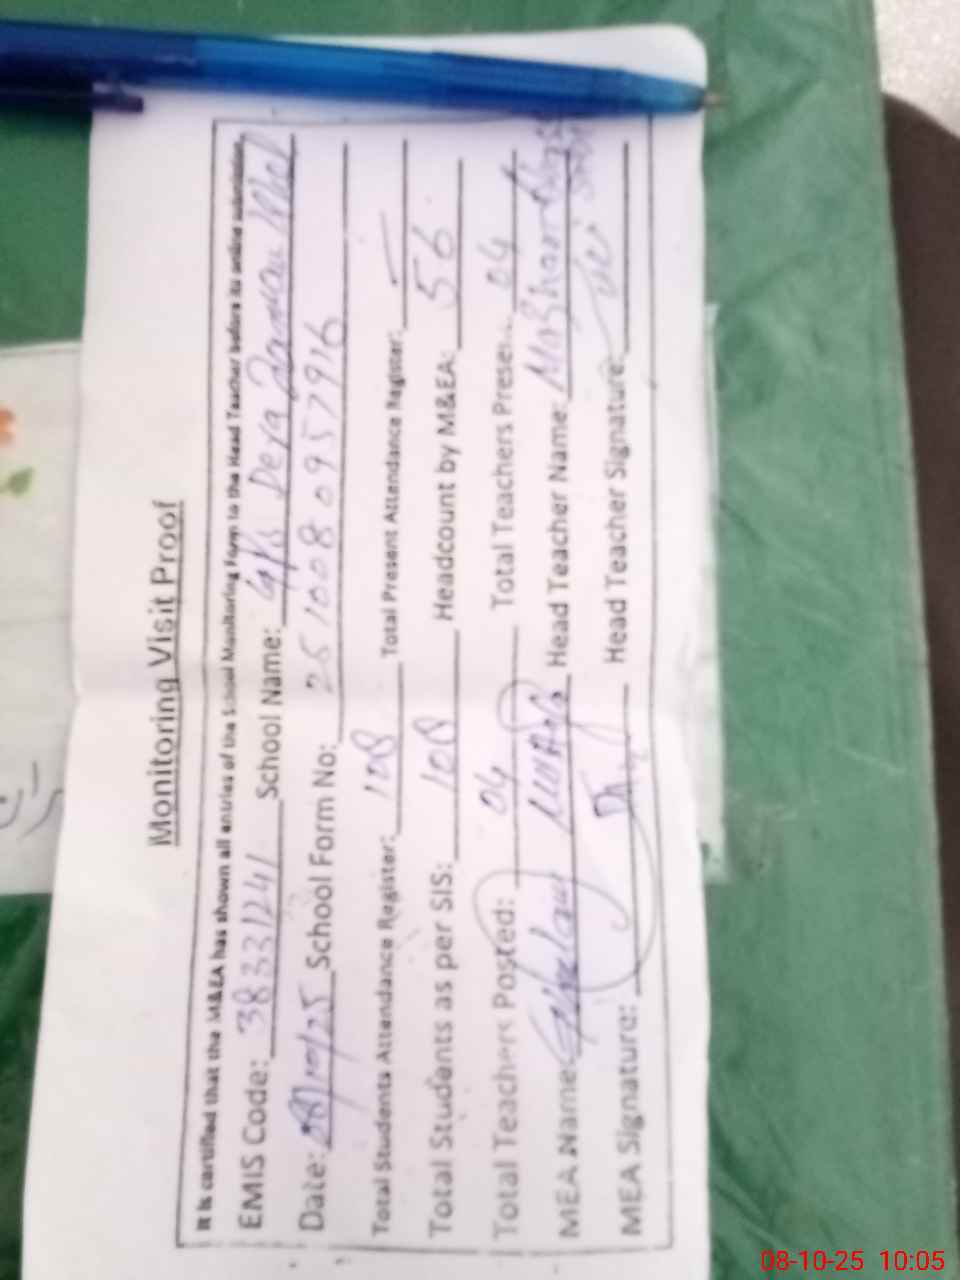 Monitoring Visit Proof
It is certified that the M&EA has shown all entries of the School Monitoring Form to the Head Teacher before its online submission.
EMIS Code: 38331241 School Name: GPS Dera
Date: 08/10/25 School Form No: 2510080957916
Total Students Attendance Register: 108 Total Present Attendance Register: —
Total Students as per SIS: 108 Headcount by M&EA: 56
Total Teachers Posted: 04 Total Teachers Present: 04
MEA Name: Ghulam Head Teacher Name:
MEA Signature: Head Teacher Signature:
08-10-25 10:05